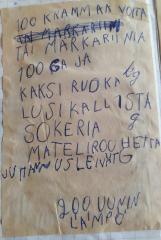 100 KRAMMAA VOITA
TAI MARKARIINIA
100 GA JA
KAKSI RUOKA kg
LUSIKALLISTA
SOKERIA g
MATELIROUHETTA
JUMANNUSLEIN G
200 UUNIN
LÄMPÖ